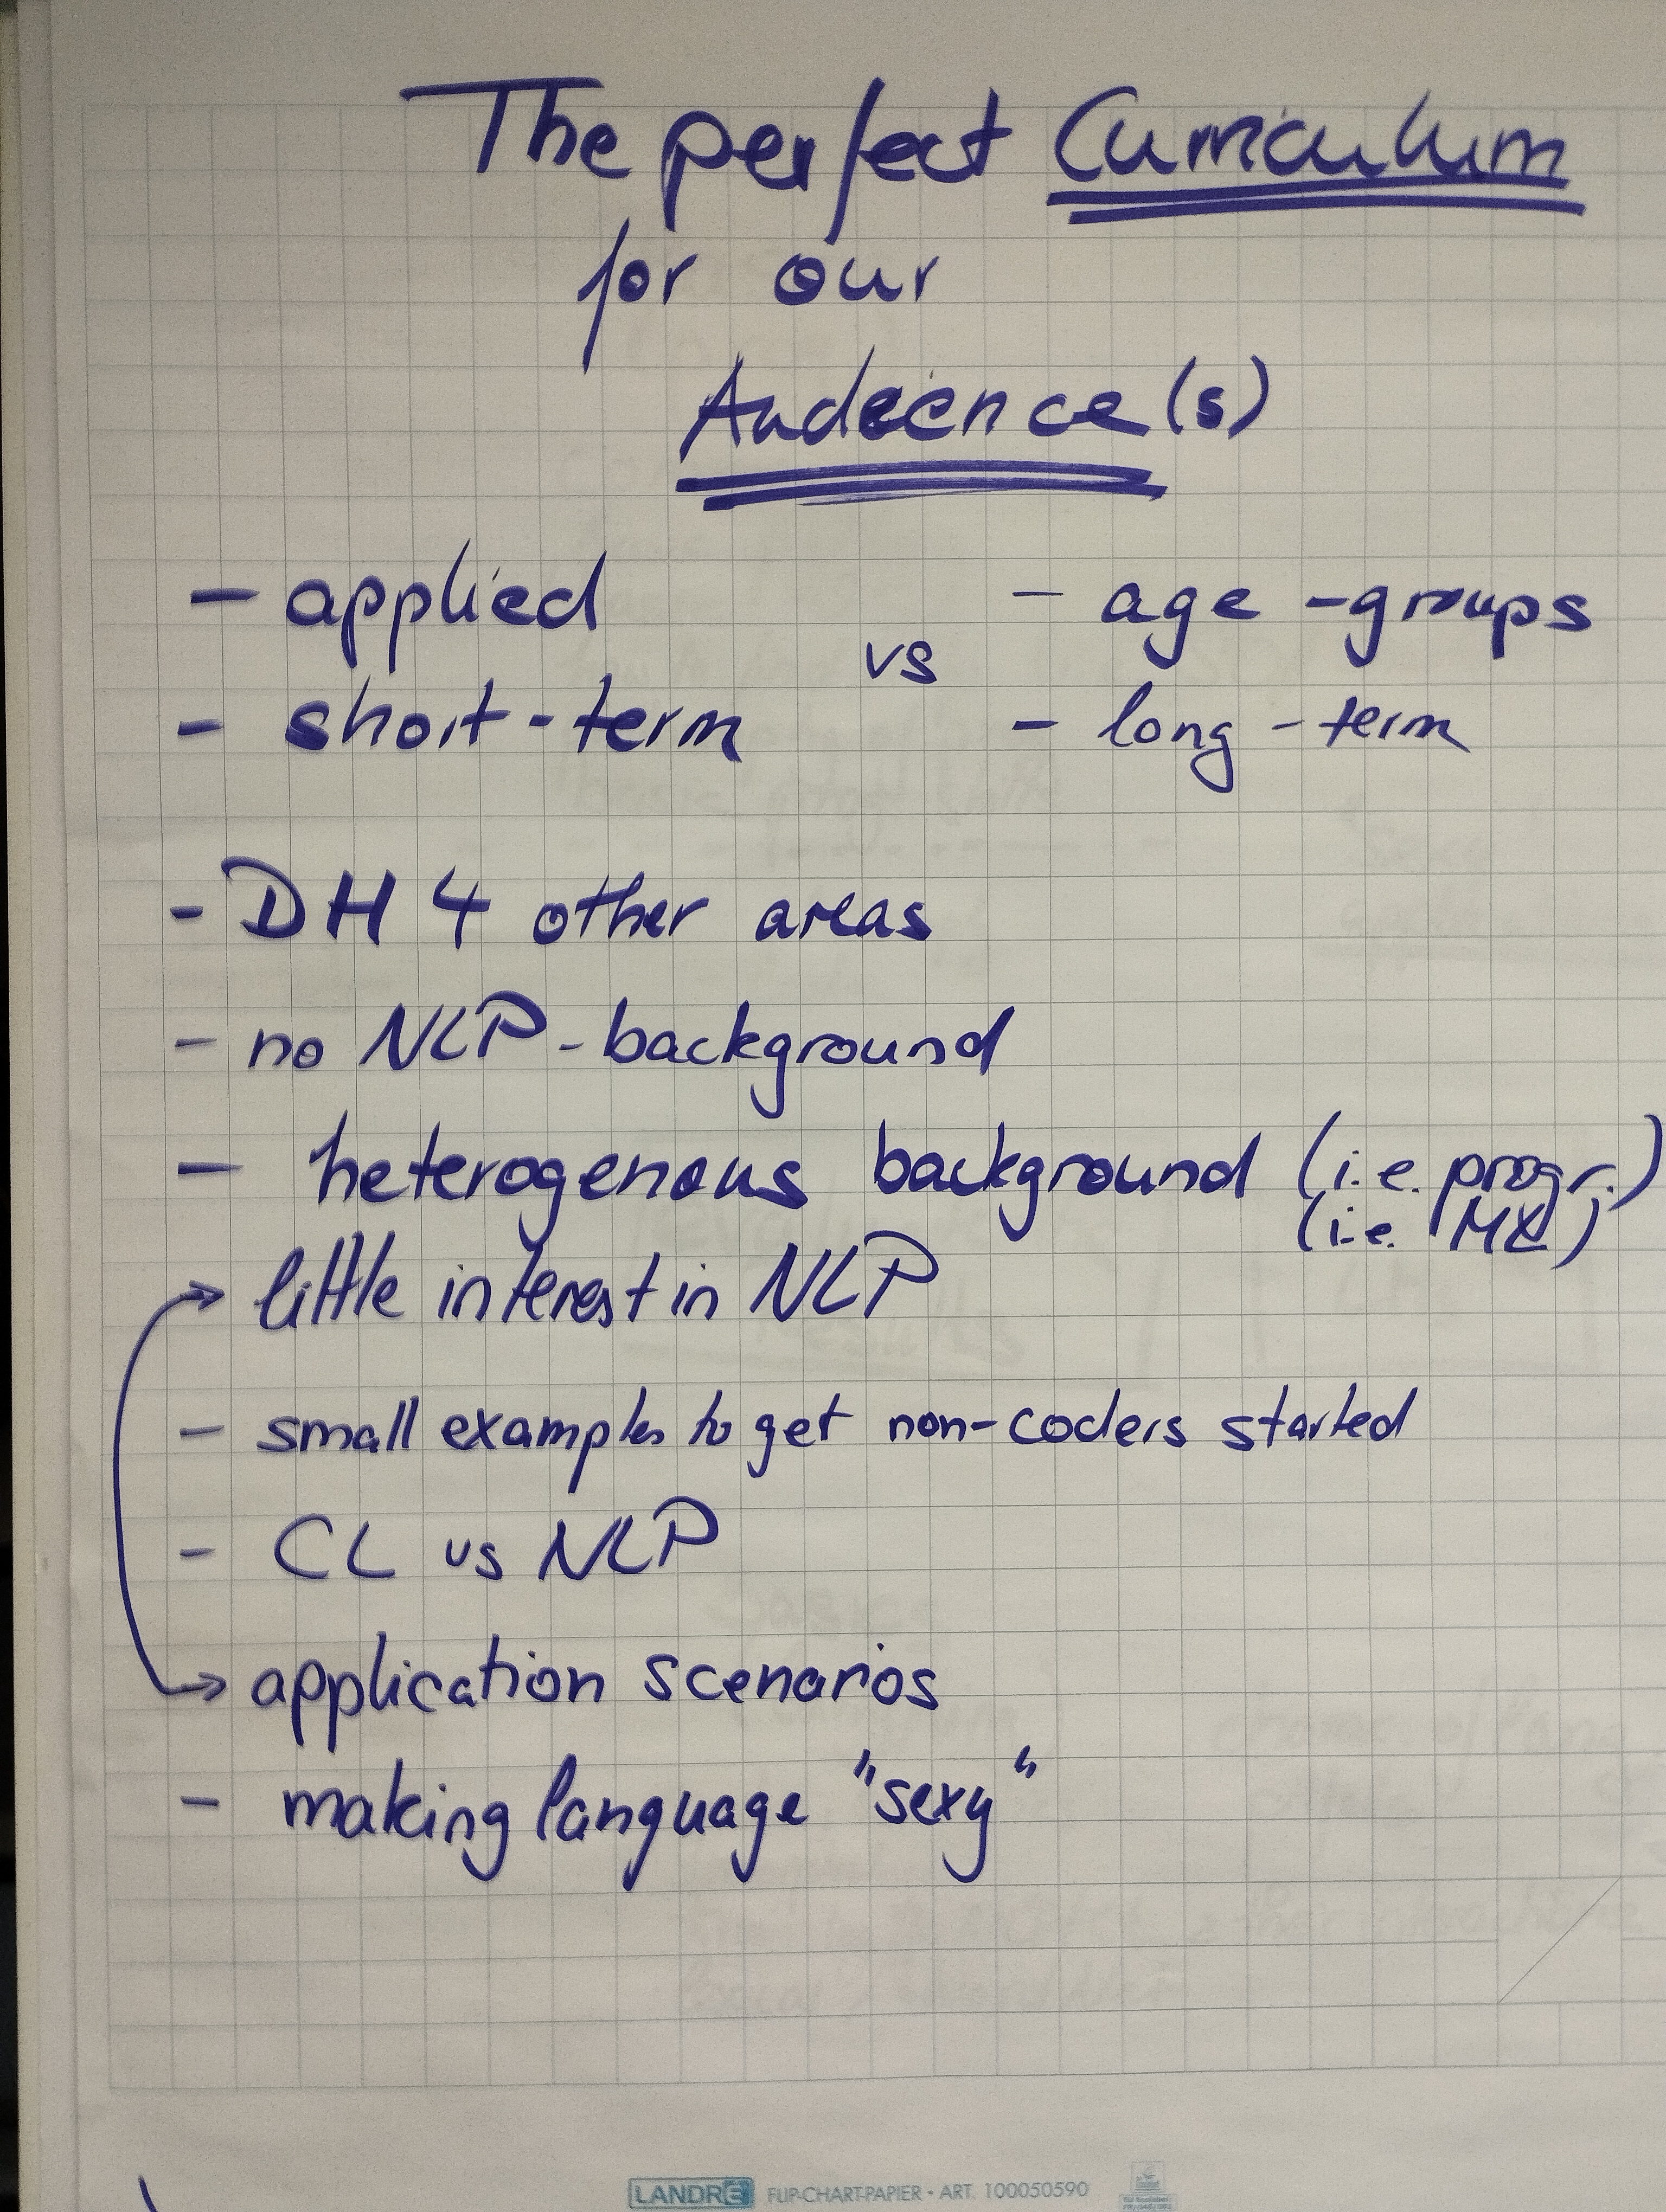 The perfect Curriculum
for our
Audience(s)
- applied
- short-term
vs
- age-groups
- long-term
- DH 4 other areas
- no NLP-background
- heterogenous background (i.e. progr.)
(i.e. ML)
→ little interest in NLP
- small examples to get non-coders started
- CL vs NLP
→ application scenarios
- making language "sexy"
LANDRÉ FLIP-CHART-PAPIER • ART. 100050590